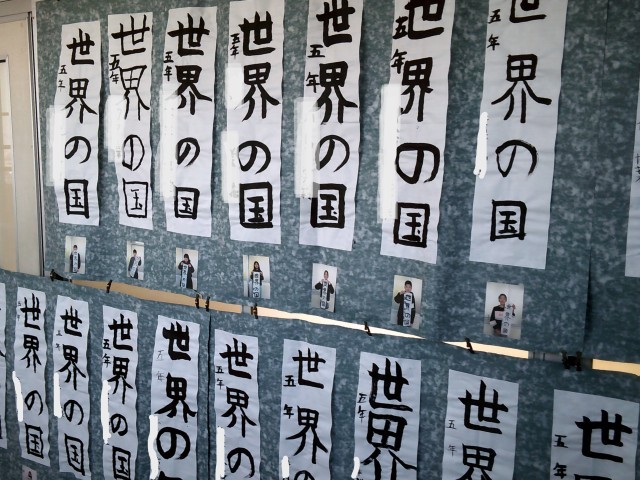 世界の国
五年
世界の国
五年
世界の国
五年
世界の国
五年
世界の国
五年
世界の国
五年
世界の国
五年
世界の国
五年
世界の国
五年
世界の国
五年
世界の
五年
世界の
五年
世界の
五年
世界
五年
世界
五年
世
五年